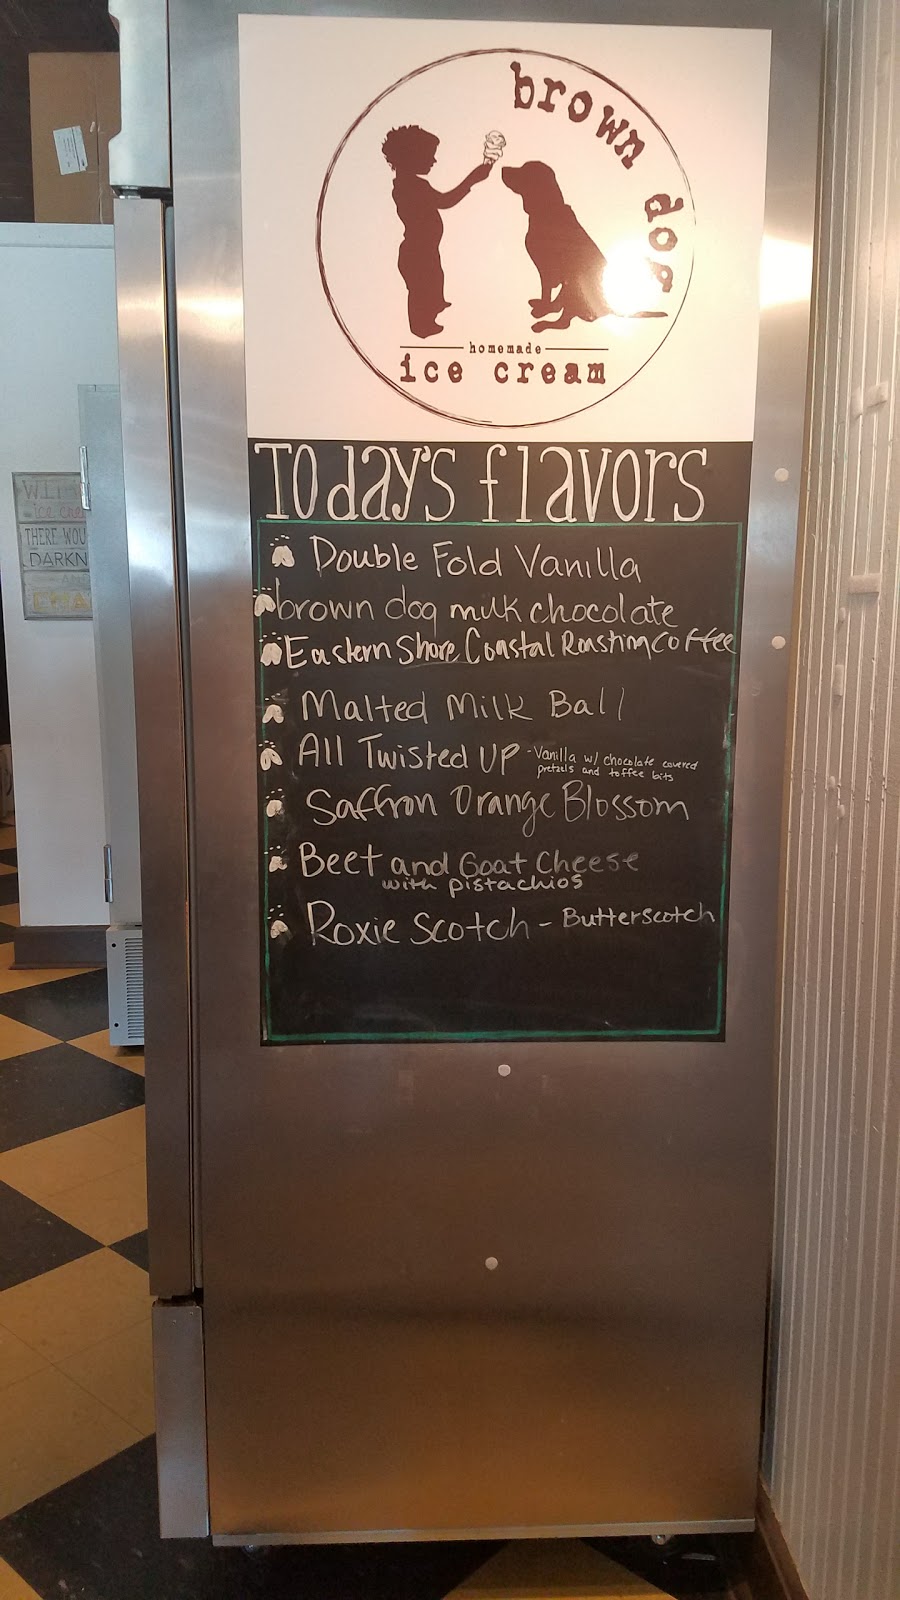 brown dog
homemade
ice cream
Today's flavors
Double Fold Vanilla
brown dog milk chocolate
Eastern Shore Coastal Roasting Coffee
Malted Milk Ball
All Twisted Up - Vanilla w/ chocolate covered
pretzels and toffee bits
Saffron Orange Blossom
Beet and Goat Cheese
with pistachios
Roxie Scotch - Butterscotch
ice
THERE